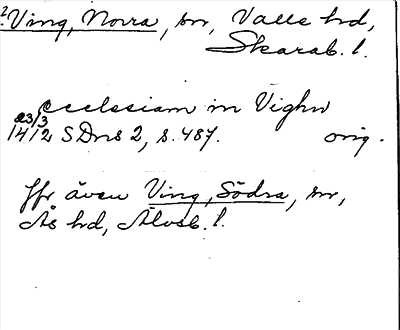 2 Ving, Norra, sn, Valle hd,
Skarab. l.
ecclesiam in Vighn
23/3
1412 SDns 2, s. 487. orig.
Jfr även Ving, Södra, sn,
Ås hd, Älvsb. l.